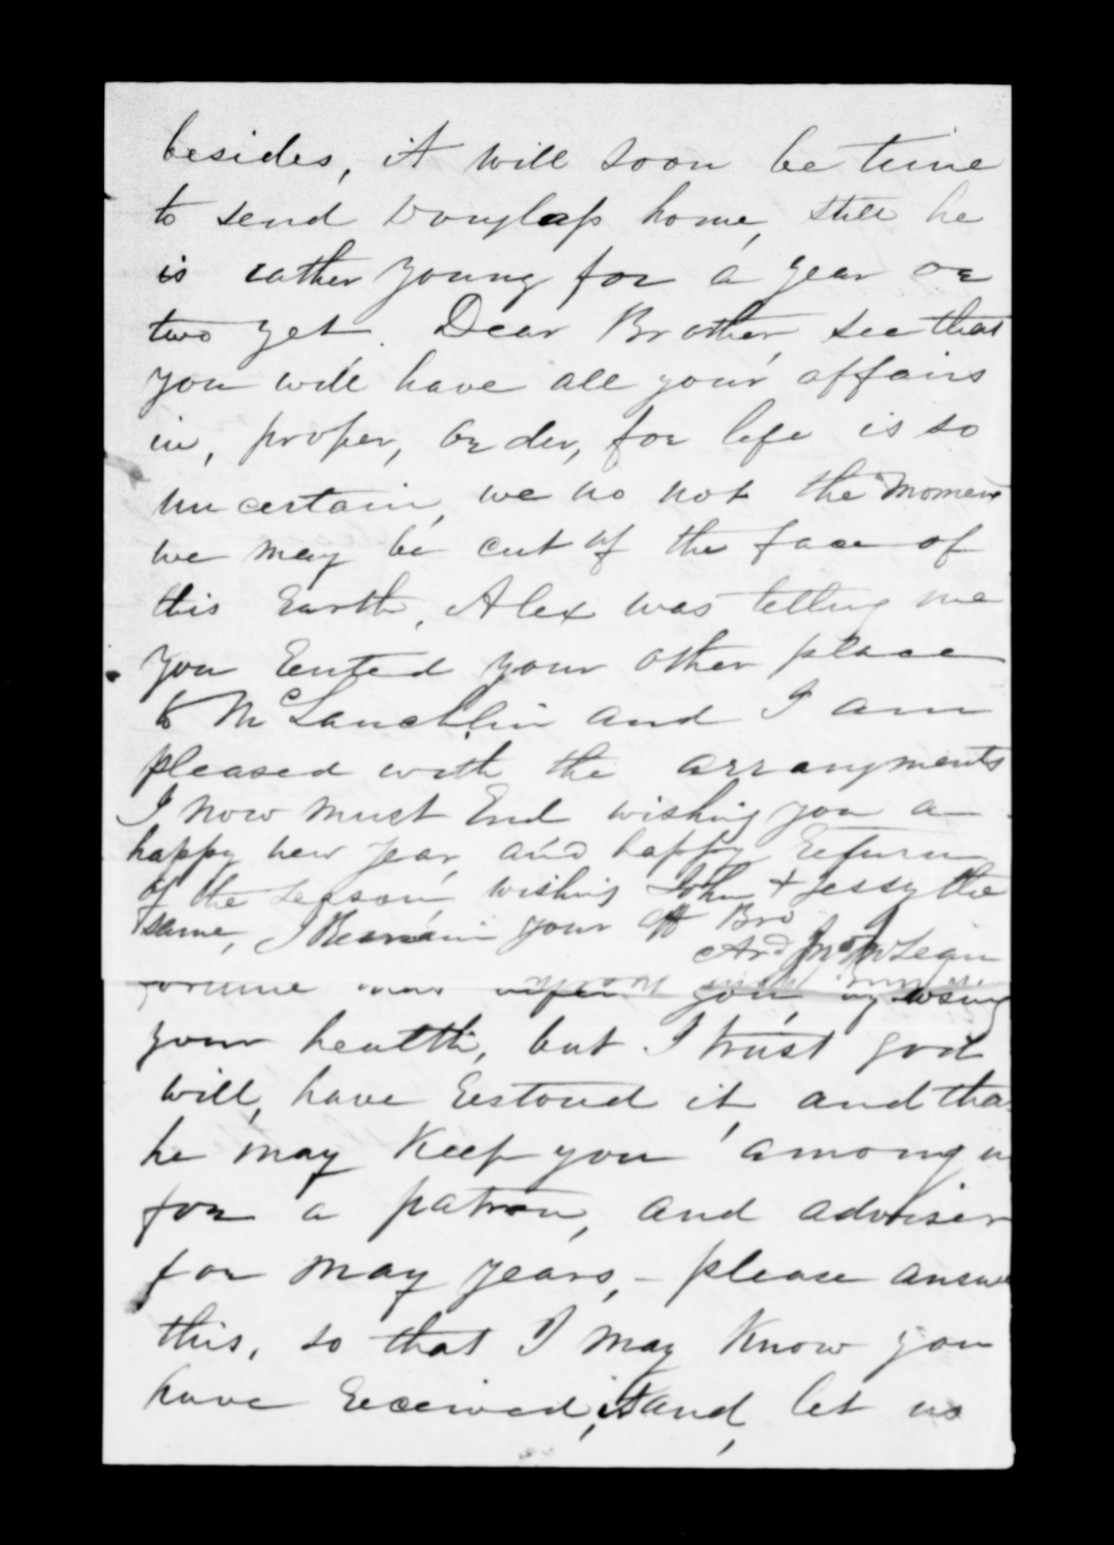 besides, it will soon be time
to send Douglass home, still he
is rather young for a year or
two yet. Dear Brother, see that
you will have all your affairs
in, proper, order, for life is so
uncertain, we no not the moment
we may be cut of the face of
this Earth, Alex was telling me
you rented your other place
to McLauchlin and I am
pleased with the arrangments
I now must End wishing you a
happy new year, and happy return
of the season, wishing John + Jessy the
same, I Remain your aff Bro
Ard McLean
you, by losing
your health, but I trust god
will, have restored it, and that
he may Keep you among us
for a patron, and adviser
for may years, - please answer
this, so that I may Know you
have received, it and, let us